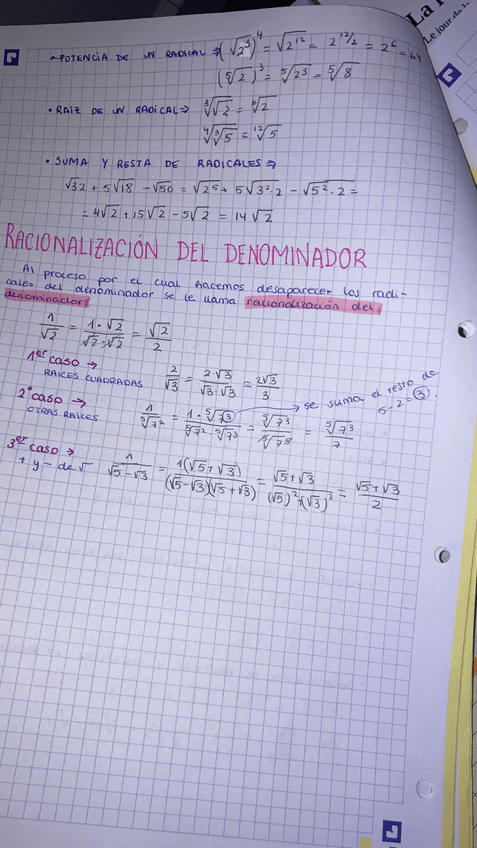 La
Le jour de
→ POTENCIA DE UN RADICAL ⇒ (√2³)⁴ = √2¹² = 2^12/2 = 2⁶ = 64
(⁵√2)³ = ⁵√2³ = ⁵√8
• RAIZ DE UN RADICAL ⇒ ³√√2 = ⁶√2
⁴√³√5 = ¹²√5
• SUMA Y RESTA DE RADICALES ⇒
√32 + 5√18 - √50 = √2⁵ + 5√3²·2 - √5²·2 =
= 4√2 + 15√2 - 5√2 = 14√2
RACIONALIZACIÓN DEL DENOMINADOR
Al proceso por el cual hacemos desaparecer los radi-
cales del denominador se le llama racionalización del
denominador.
1/√2 = 1·√2/√2·√2 = √2/2
1er CASO → 2/√3 = 2·√3/√3·√3 = 2√3/3
RAICES CUADRADAS
2º CASO → 1/⁵√7² = 1·⁵√7³/⁵√7²·⁵√7³ = ⁵√7³/⁵√7⁵ = ⁵√7³/7
OTRAS RAICES
→ se suma el resto de
5-2=3.
3er CASO → 1/√5-√3 = 1(√5+√3)/(√5-√3)(√5+√3) = √5+√3/(√5)²-(√3)² = √5+√3/2
+ y - de √